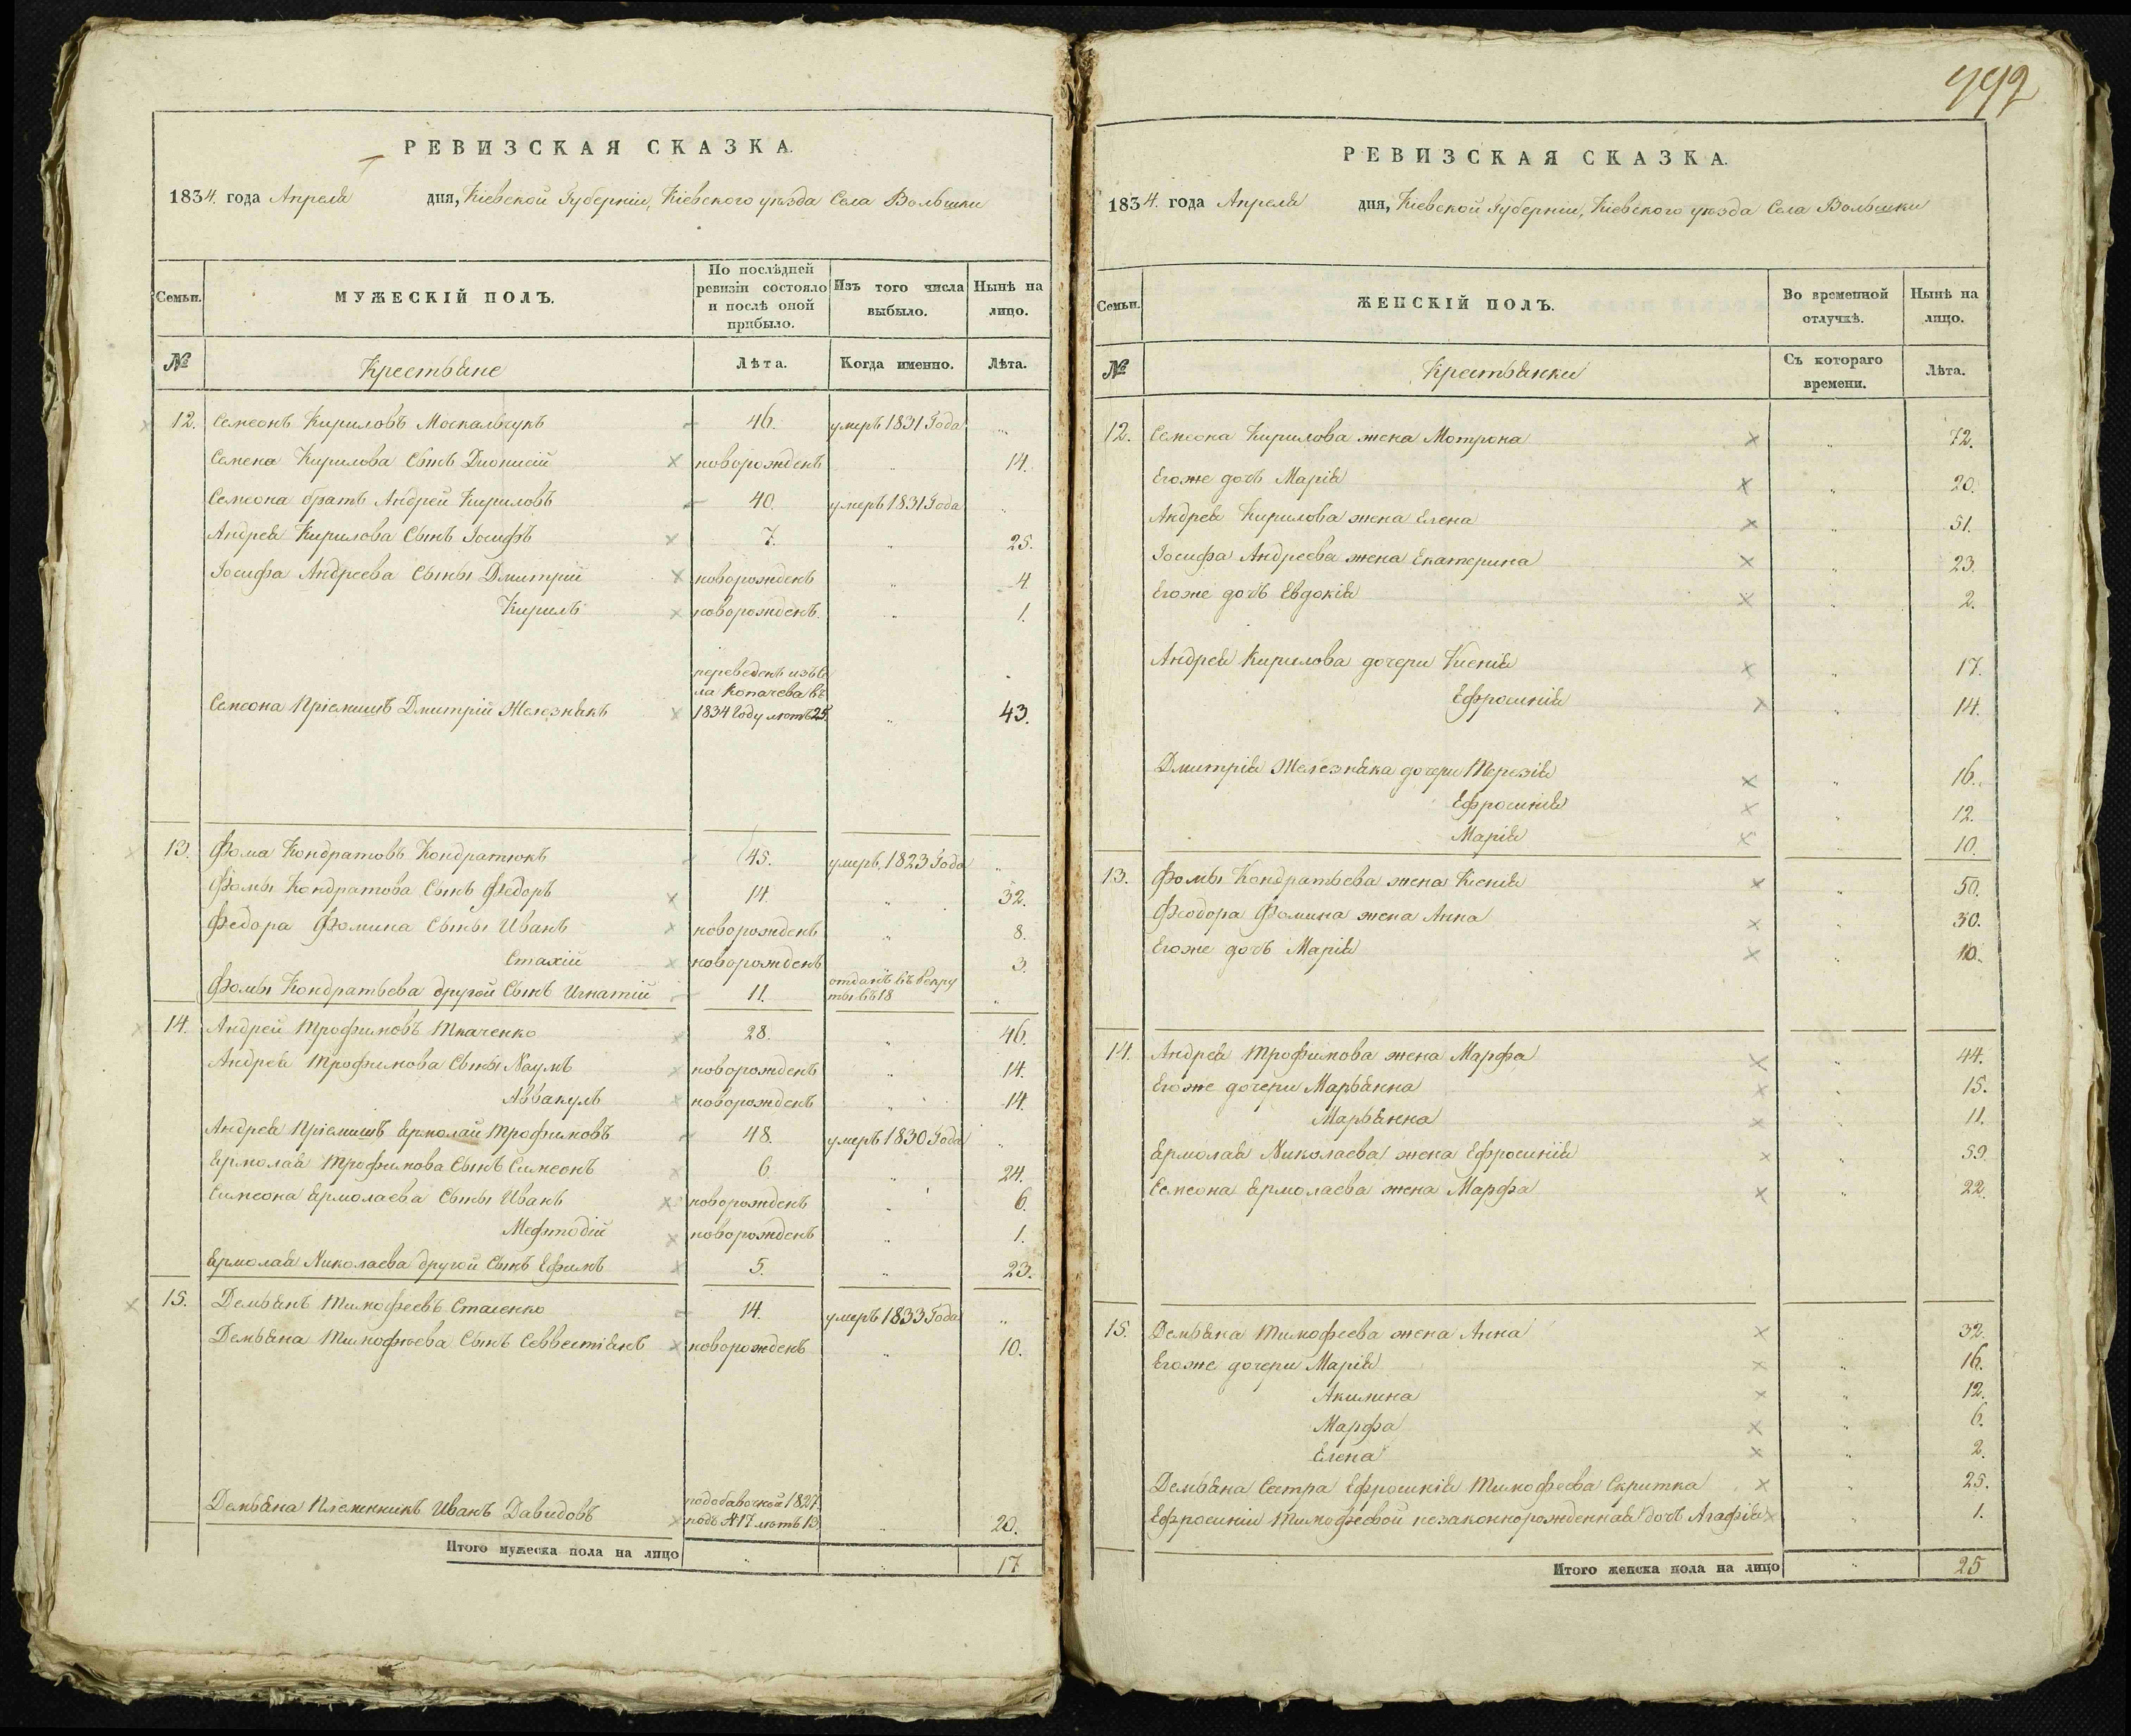 992
РЕВИЗСКАЯ СКАЗКА.
1834. года Апреля дня, Кіевской Губерніи, Кіевского уезда Села Вольшки
Семьи. МУЖЕСКІЙ ПОЛЪ. По послѣдней ревизіи состояло и послѣ оной прибыло. Изъ того числа выбыло. Нынѣ на лицо.
№ Крестьяне Лѣта. Когда именно. Лѣта.
12. Семеонъ Кириловъ Москальчукъ 46. умеръ 1831 Года „
Семена Кирилова Сынъ Дионисій новорожденъ „ 14.
Семеона братъ Андрей Кириловъ 40. умеръ 1831 Года „
Андрея Кирилова Сынъ Іосифъ 7. „ 25.
Іосифа Андреева Сыны Дмитрій новорожденъ „ 4.
Кирилъ новорожденъ. „ 1.
переведенъ изъ Се
ла Копачева въ
Семеона Пріемышъ Дмитрій Железнякъ 1834 Году летъ 25. „ 43.
13. Фома Кондратовъ Кондратюкъ 45. умеръ 1823 Года „
Фомы Кондратова Сынъ Федоръ 14. „ 32.
Федора Фомина Сыны Иванъ новорожденъ „ 8.
Стахій новорожденъ 3.
отданъ въ Рекру
Фомы Кондратьева другой Сынъ Игнатій 11. ты въ 18 „
14. Андрей Трофимовъ Ткаченко 28. „ 46.
Андрея Трофимова Сыны Наумъ новорожденъ „ 14.
Аввакумъ новорожденъ „ 14.
Андрея Пріемышъ Ермолай Трофимовъ 48. умеръ 1830 Года „
Ермолая Трофимова Сынъ Симеонъ 6 „ 24.
Симеона Ермолаева Сыны Иванъ новорожденъ „ 6.
Мефтодій новорожденъ „ 1.
Ермолая Николаева другой Сынъ Ефимъ 5. „ 23.
15. Демьянъ Тимофеевъ Стасенко 14. умеръ 1833 Года „
Демьяна Тимофеева Сынъ Севвестіянъ новорожденъ „ 10.
подобавочной 1827
Демьяна Племенникъ Иванъ Давидовъ подъ № 17 летъ 13. „ 20.
Итого мужеска пола на лицо „ „ 17
РЕВИЗСКАЯ СКАЗКА.
1834. года Апреля дня, Кіевской Губерніи, Кіевского уезда Села Вольшки
Семьи. ЖЕНСКІЙ ПОЛЪ. Во временной отлучкѣ. Нынѣ на лицо.
№ Крестьянки Съ котораго времени. Лѣта.
12. Семеона Кирилова жена Мотрона „ 72.
Егоже дочь Марія „ 20.
Андрея Кирилова жена Елена „ 51.
Іосифа Андреева жена Екатерина „ 23.
Егоже дочь Евдокія „ 2.
Андрея Кирилова дочери Ксенія „ 17.
Ефросинія „ 14.
Дмитрія Железняка дочери Терезія „ 16.
Ефросинія „ 12.
Марія „ 10.
13. Фомы Кондратьева жена Ксенія „ 50.
Феодора Фомина жена Анна „ 30.
Егоже дочь Марія „ 10.
14. Андрея Трофимова жена Марфа „ 44.
Егоже дочери Марьянна „ 15.
Марьянна „ 11.
Ермолая Николаева жена Ефросинія „ 59.
Семеона Ермолаева жена Марфа „ 22.
15. Демьяна Тимофеева жена Анна „ 32.
Егоже дочери Марія „ 16.
Акилина „ 12.
Марфа „ 6.
Елена „ 2.
Демьяна Сестра Ефросинія Тимофеева Скритка „ 25.
Ефросиніи Тимофеевой незаконнорожденная дочь Агафія „ 1.
Итого женска пола на лицо „ 25